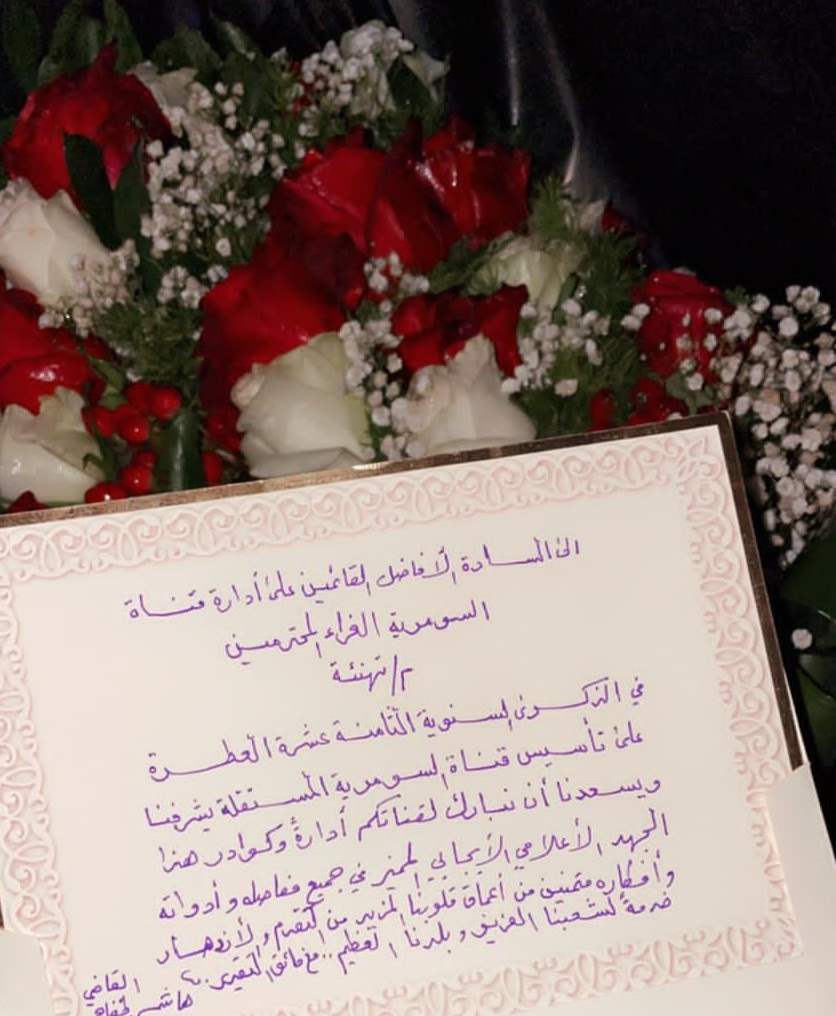 الى السادة الأفاضل القائمين على أدارة قناة
السومرية الغراء المحترمين
م/ تهنئة
في الذكرى السنوية الثامنة عشرة العطرة
على تأسيس قناة السومرية المستقلة يشرفنا
ويسعدنا أن نبارك لقناتكم أدارةً وكوادر هذا
الجهد الأعلامي الأيجابي المميز في جميع مفاصله وأدواته
وأفكاره متمنين من أعماق قلوبنا المزيد من التقدم والأزدهار
خدمةً لشعبنا العزيز وبلدنا العظيم .. مع فائق التقدير ..
القاضي
هاشم